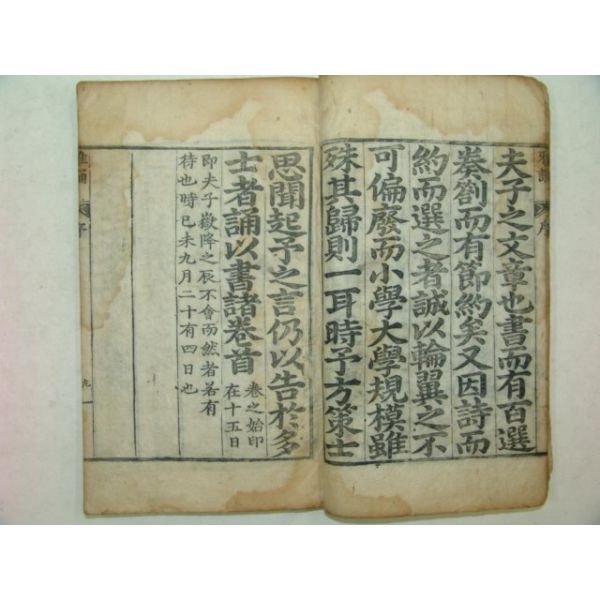 雅誦 序
夫子之文章也書而有百選
奏劄而有節約矣又因詩而
約而選之者誠以輪翼之不
可偏廢而小學大學規模雖
殊其歸則一耳時予方策士
思聞起予之言仍以告於多
士者誦以書諸卷首
卷之始印
在十五日
即夫子嶽降之辰不會而然者若有
待也時己未九月二十有四日也
序
九